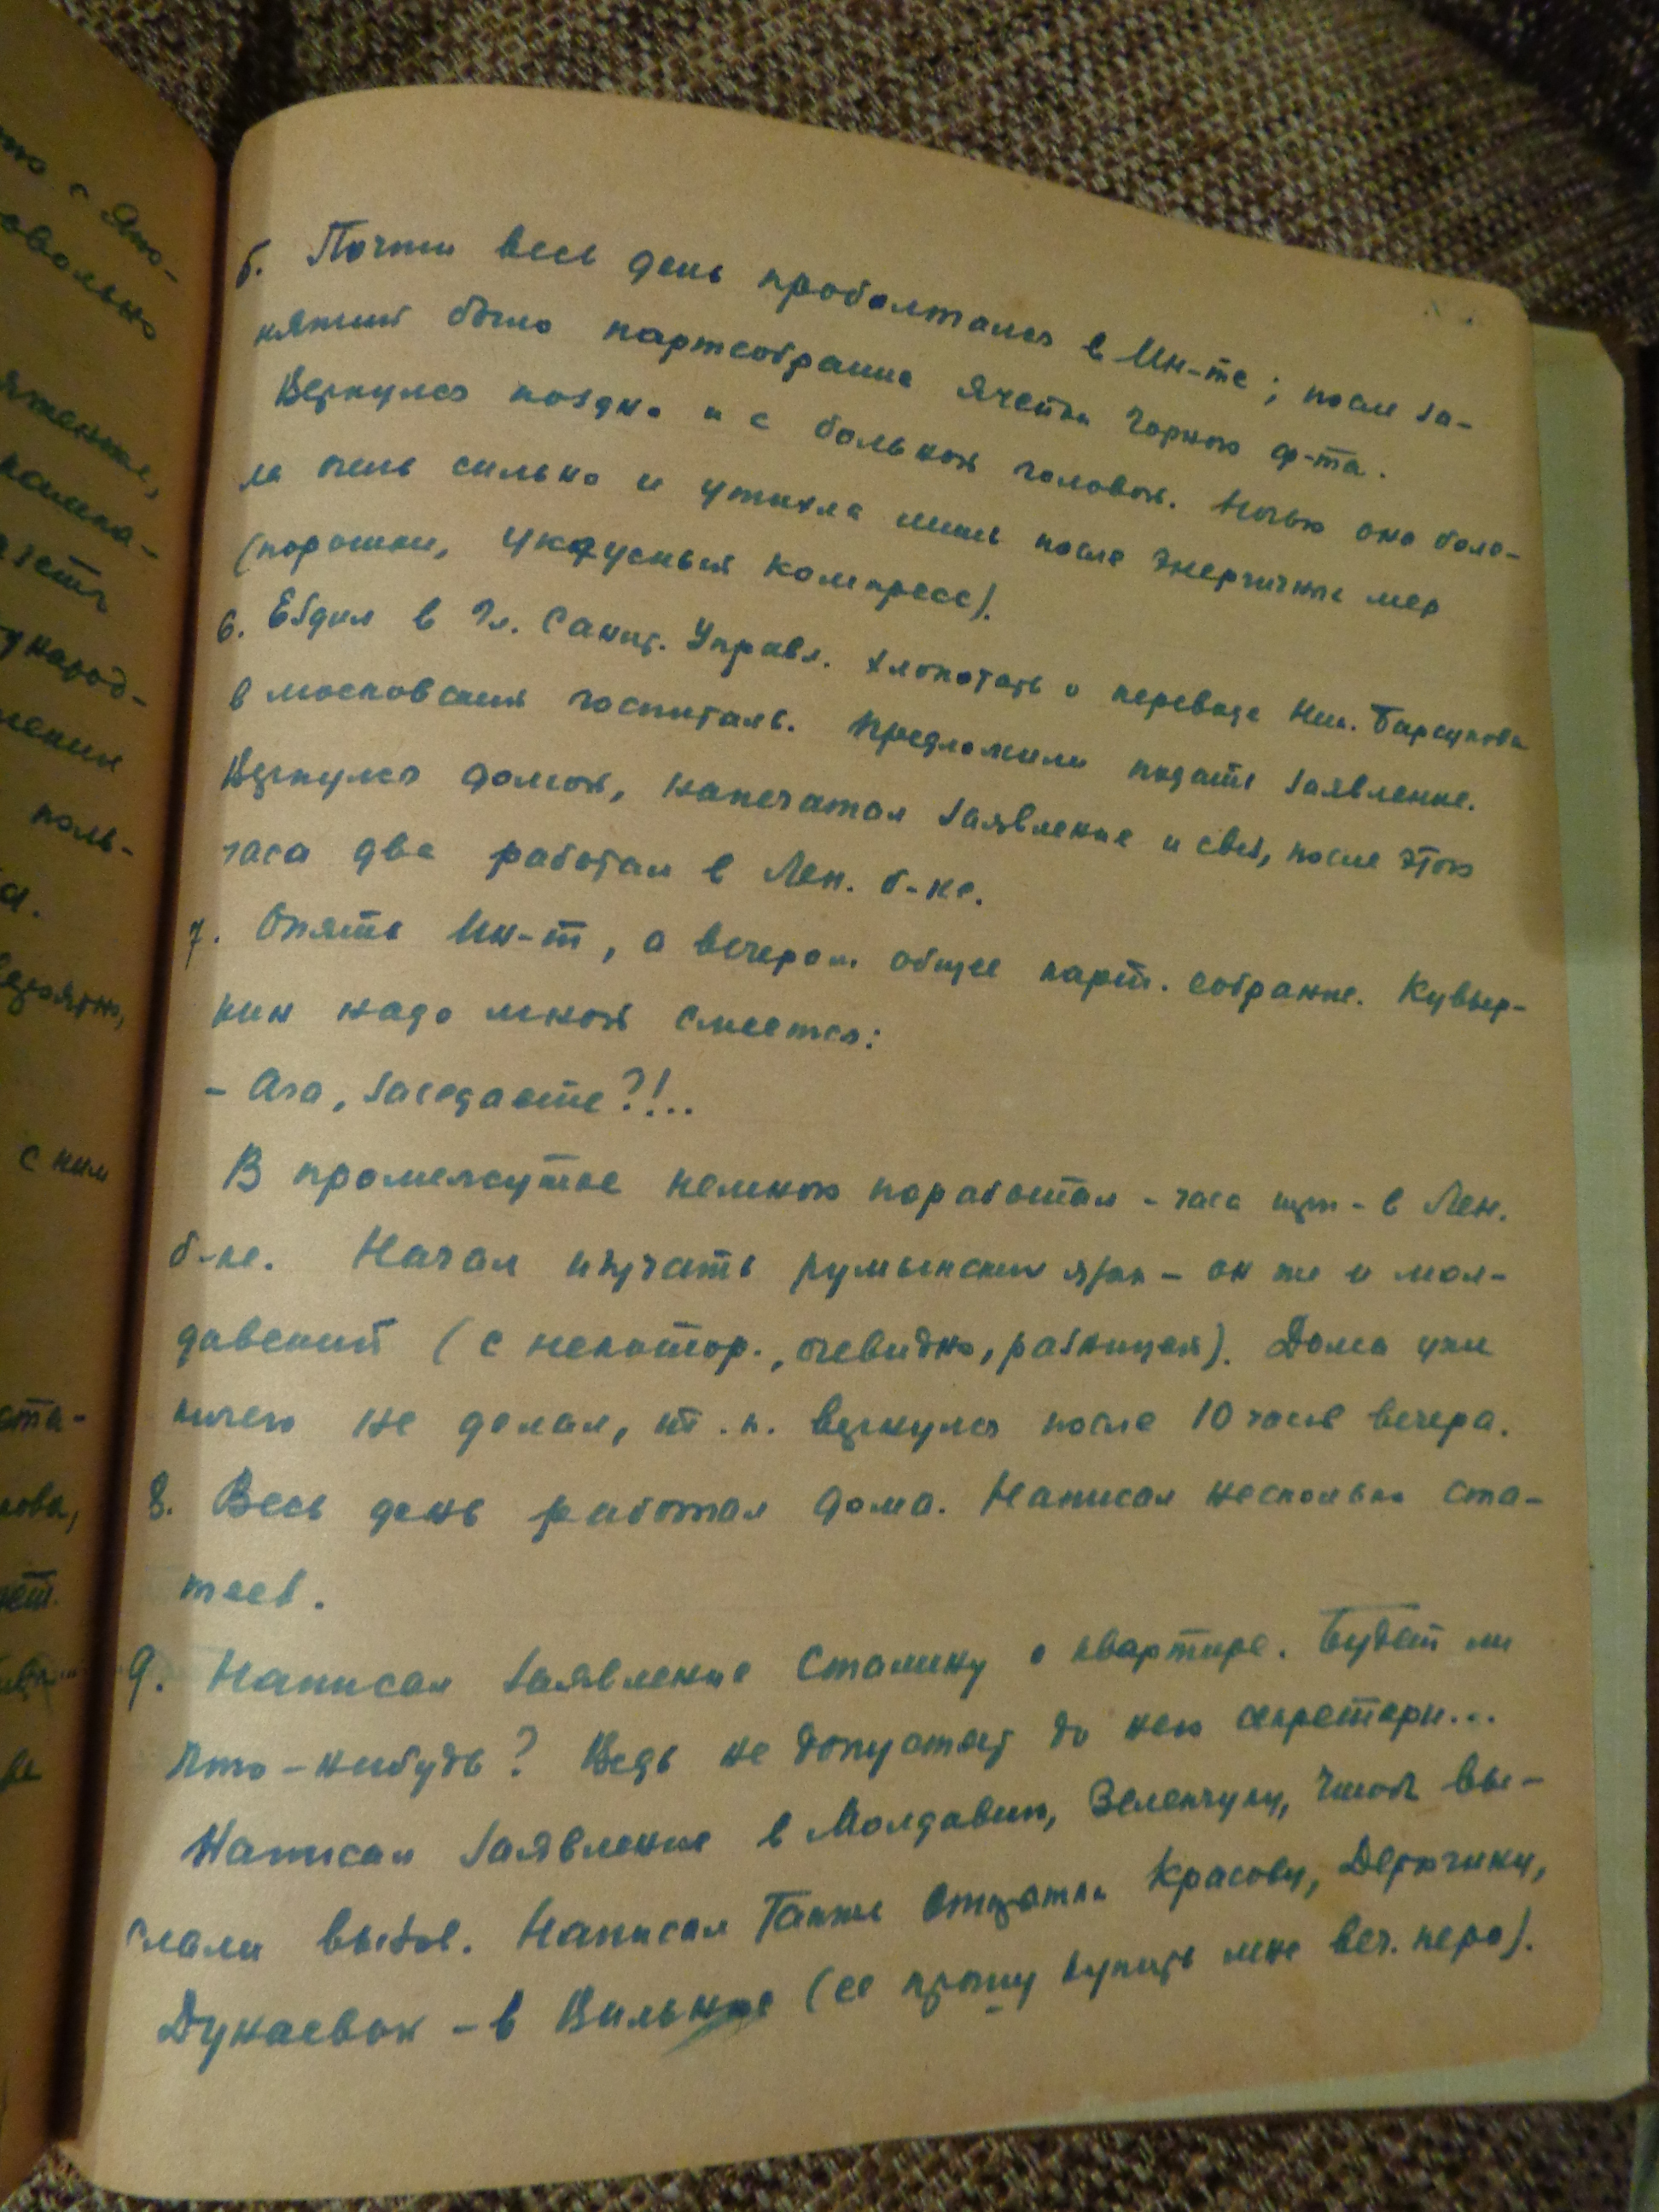 5. Почти весь день проболтался в Ин-те; после за-
нятий было партсобрание ячейки Горного ф-та.
Вернулся поздно и с больной головой. Ночью она боле-
ла очень сильно и утихла лишь после энергичных мер
(порошки, уксусный компресс).
6. Ездил в Гл. Санит. Управл. хлопотать о переводе Ник. Барсукова
в московский госпиталь. Предложили подать заявление.
Вернулся домой, напечатал заявление и свез, после этого
часа два работал в Лен. б-ке.
7. Опять Ин-т, а вечером общее парт. собрание. Кувыр-
кин надо мной смеется:
- Ага, заседаете?!..
В промежутке немного поработал - часа три - в Лен.
б-ке. Начал изучать румынский язык - он же и мол-
давский (с некотор., очевидно, разницей). Дома уже
ничего не делал, т.к. вернулся после 10 часов вечера.
8. Весь день работал дома. Написал несколько ста-
теек.
9. Написал заявление Сталину о квартире. Будет ли
что-нибудь? Ведь не допустят до него секретари...
Написал заявление в Молдавию, Зеленчуку, чтоб вы-
слали вызов. Написал также открытки Красову, Дерючину,
Дунаевой - в Вильно (ее прошу купить мне веч. перо).
с ним